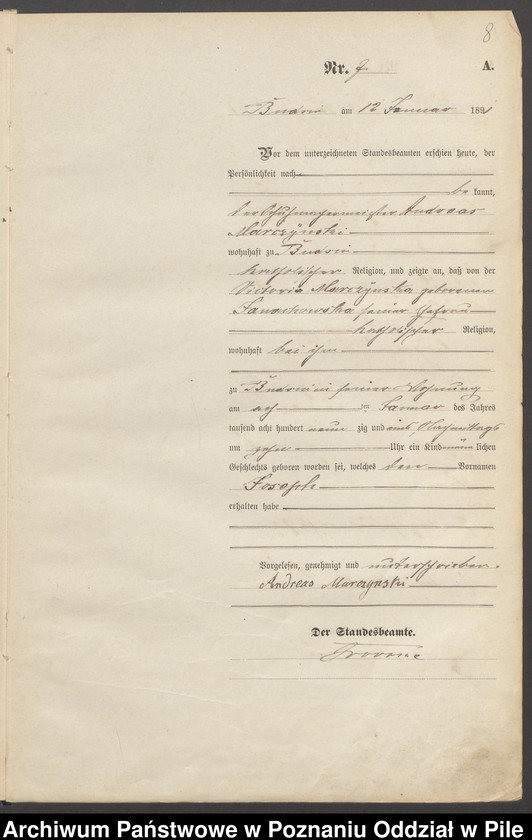 8
Nr. 7 A.
Budsin am 12 Januar 1891
Vor dem unterzeichneten Standesbeamten erschien heute, der
Persönlichkeit nach
be kannt,
der Schuhmachermeister Andreas
Marczynski
wohnhaft zu Budsin
katholischer Religion, und zeigte an, daß von der
Victoria Marczynska geborenen
Janachowska seiner Ehefrau
katholischer Religion,
wohnhaft bei ihm
zu Budsin in seiner Wohnung
am ach im Januar des Jahres
tausend acht hundert neun zig und eins, Nachmittags
um zehn Uhr ein Kind männ lichen
Geschlechts geboren worden sei, welches den Vornamen
Joseph
erhalten habe
Vorgelesen, genehmigt und unterschrieben.
Andreas Marczynski
Der Standesbeamte.
Archiwum Państwowe w Poznaniu Oddział w Pile